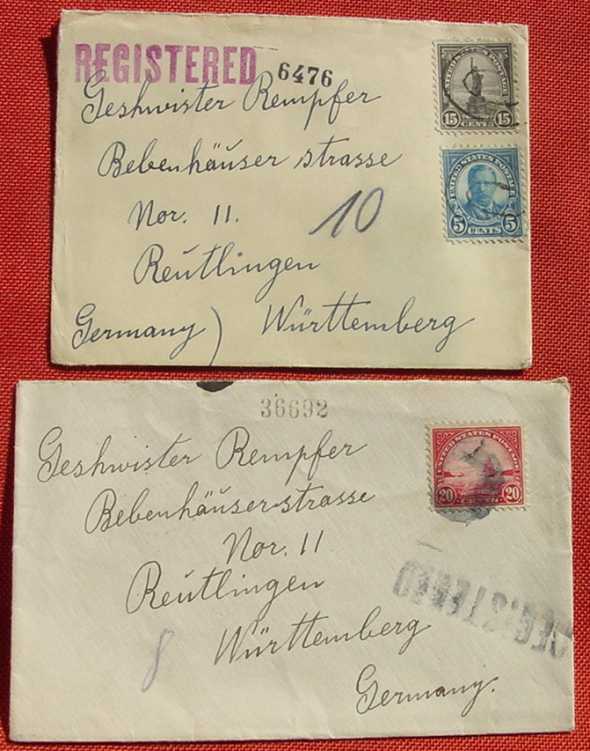 REGISTERED 6476
Geshwister Rempfer
Bebenhäuser strasse
Nor. 11.
10
Reutlingen
Germany) Württemberg
UNITED STATES POSTAGE
15 CENTS 15
UNITED STATES POSTAGE
5 CENTS 5
36692
Geshwister Rempfer
Bebenhäuserstrasse
Nor. 11
Reutlingen
Württemberg
Germany.
8
UNITED STATES POSTAGE
20 CENTS 20
REGISTERED